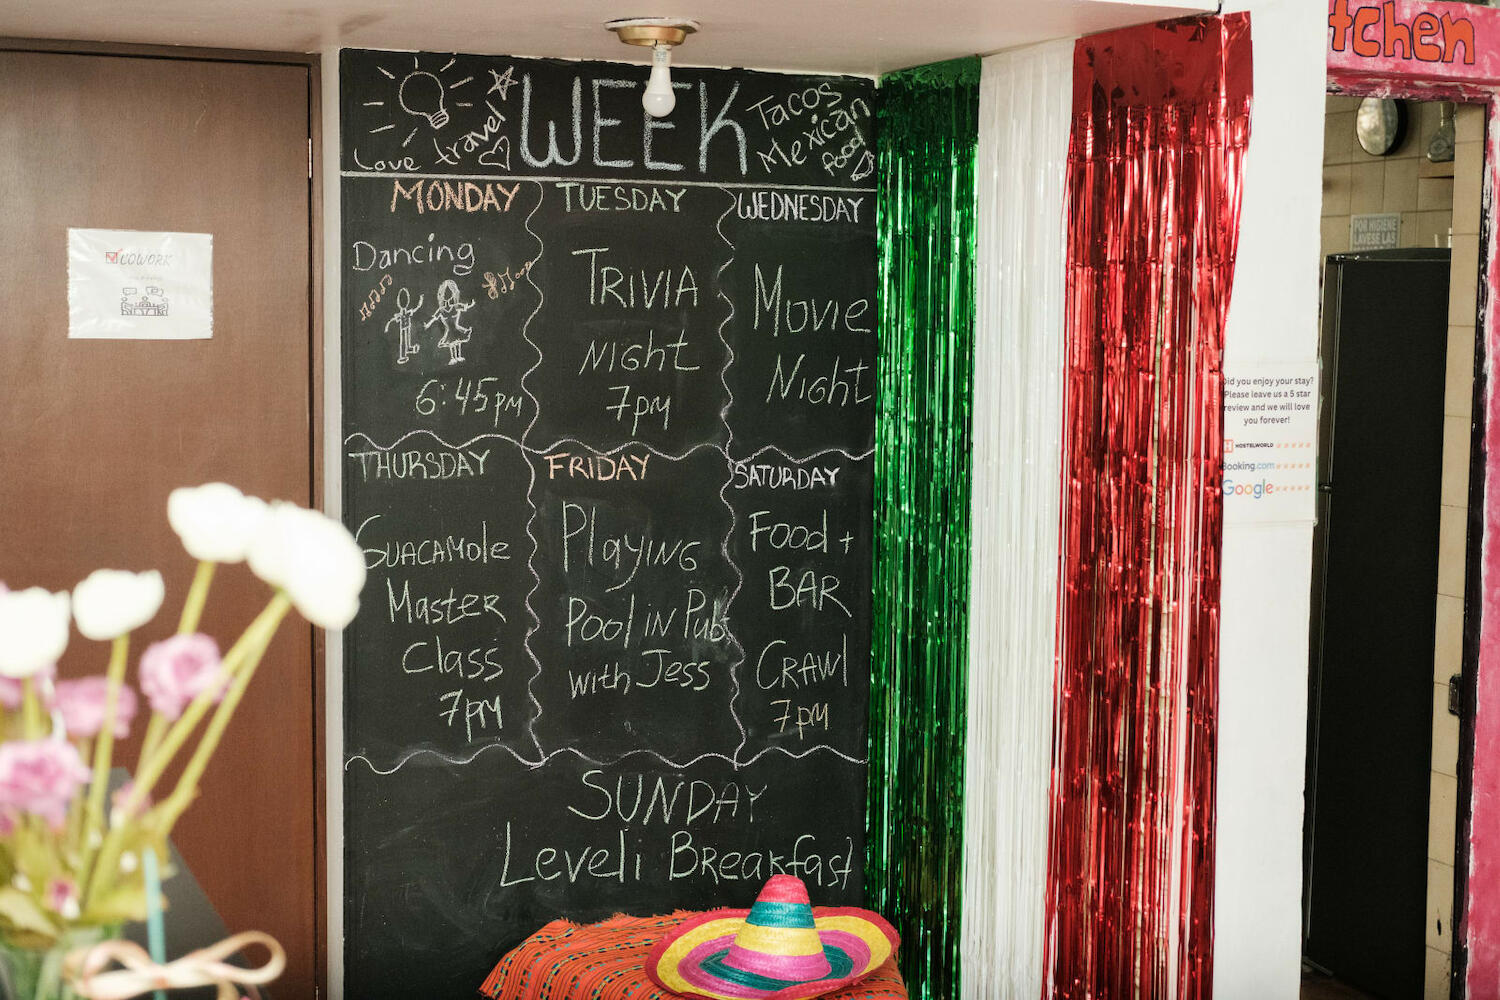 COWORK
Love travel
WEEK
Tacos
Mexican
food
MONDAY
Dancing
6:45pm
TUESDAY
TRIVIA
NIGHT
7pm
WEDNESDAY
MOVIE
NIGHT
THURSDAY
GUACAMOLE
MASTER
CLASS
7pm
FRIDAY
PLAYING
POOL IN PUB
WITH JESS
SATURDAY
FOOD +
BAR
CRAWL
7pm
SUNDAY
LEVELI BREAKFAST
tchen
POR HIGIENE
LAVESE LAS
Did you enjoy your stay?
Please leave us a 5 star
review and we will love
you forever!
HOSTELWORLD
Booking.com
Google